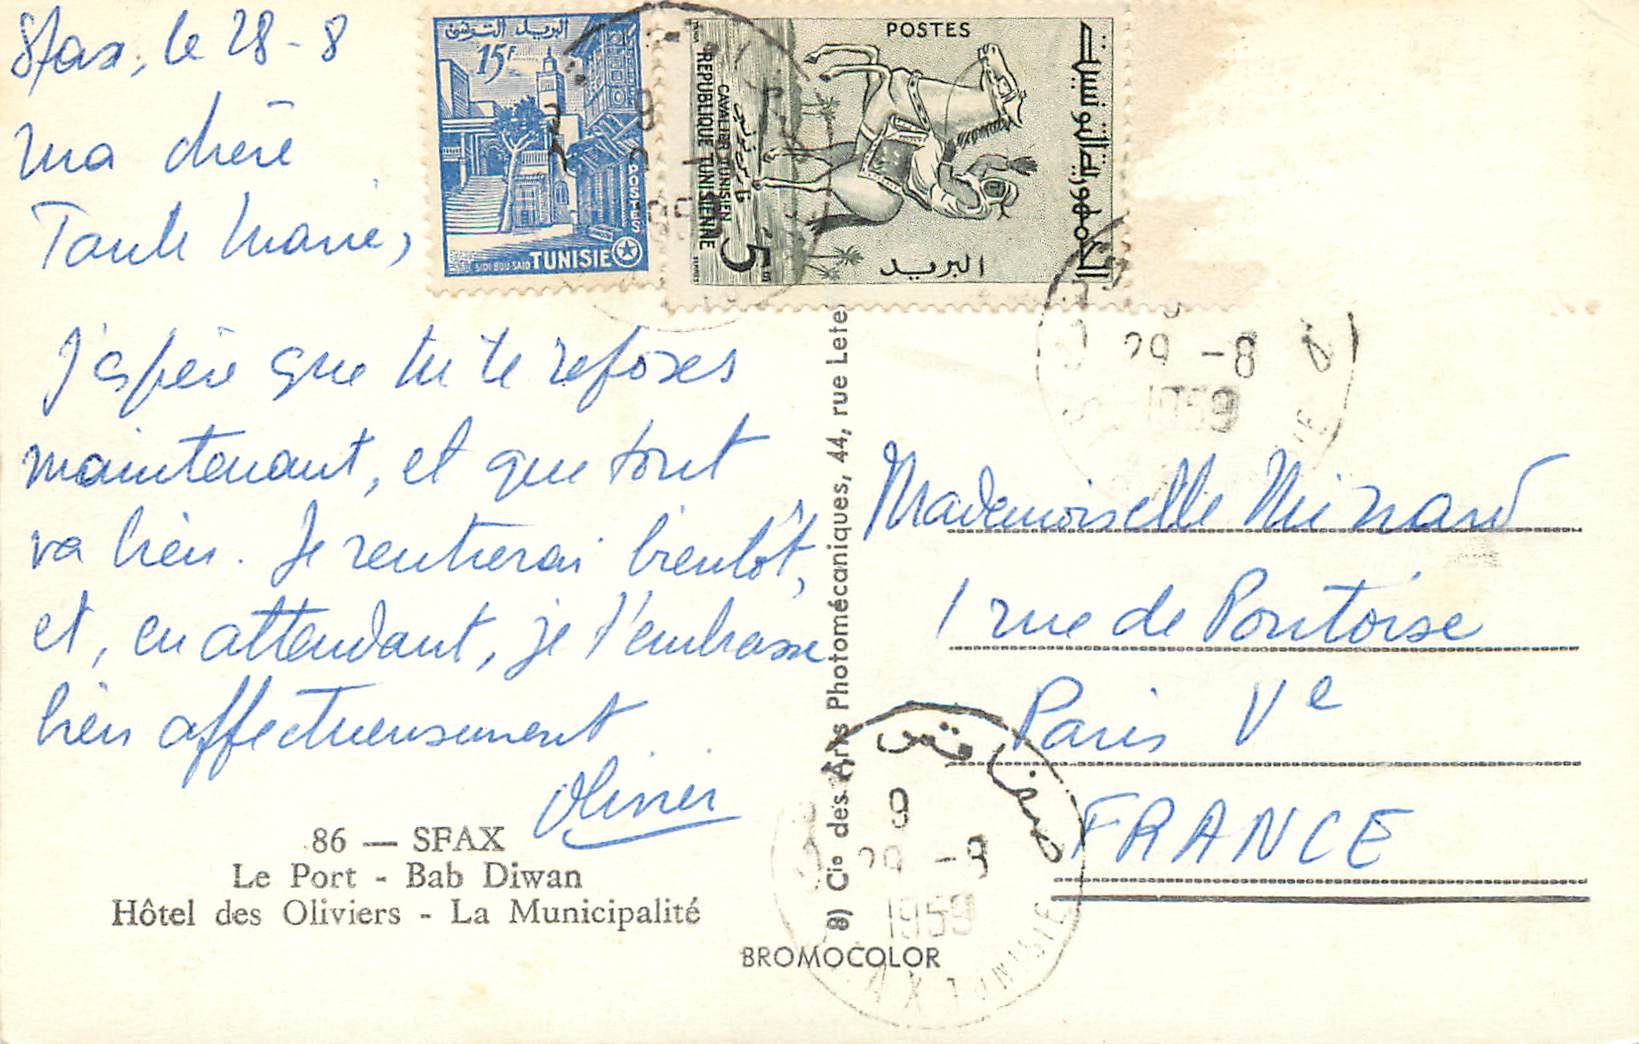 Sfax, le 28-8
ma chère
Tante Marie,
J'espère que tu te reposes
maintenant, et que tout
va bien. Je rentrerai bientôt,
et, en attendant, je t'embrasse
bien affectueusement
Olivier
86 — SFAX
Le Port - Bab Diwan
Hôtel des Oliviers - La Municipalité
BROMOCOLOR
8) Cie des Arts Photomécaniques, 44, rue Lete
البريد التونسي
15F
POSTES
SIDI BOU SAID TUNISIE
POSTES
الجمهورية التونسية
البريد
5
CAVALIER TUNISIEN
REPUBLIQUE TUNISIENNE
29 -8
1959
Mademoiselle Minard
1 rue de Pontoise
Paris Ve
FRANCE
صفاقس
9
29 -8
1959
TUNISIE